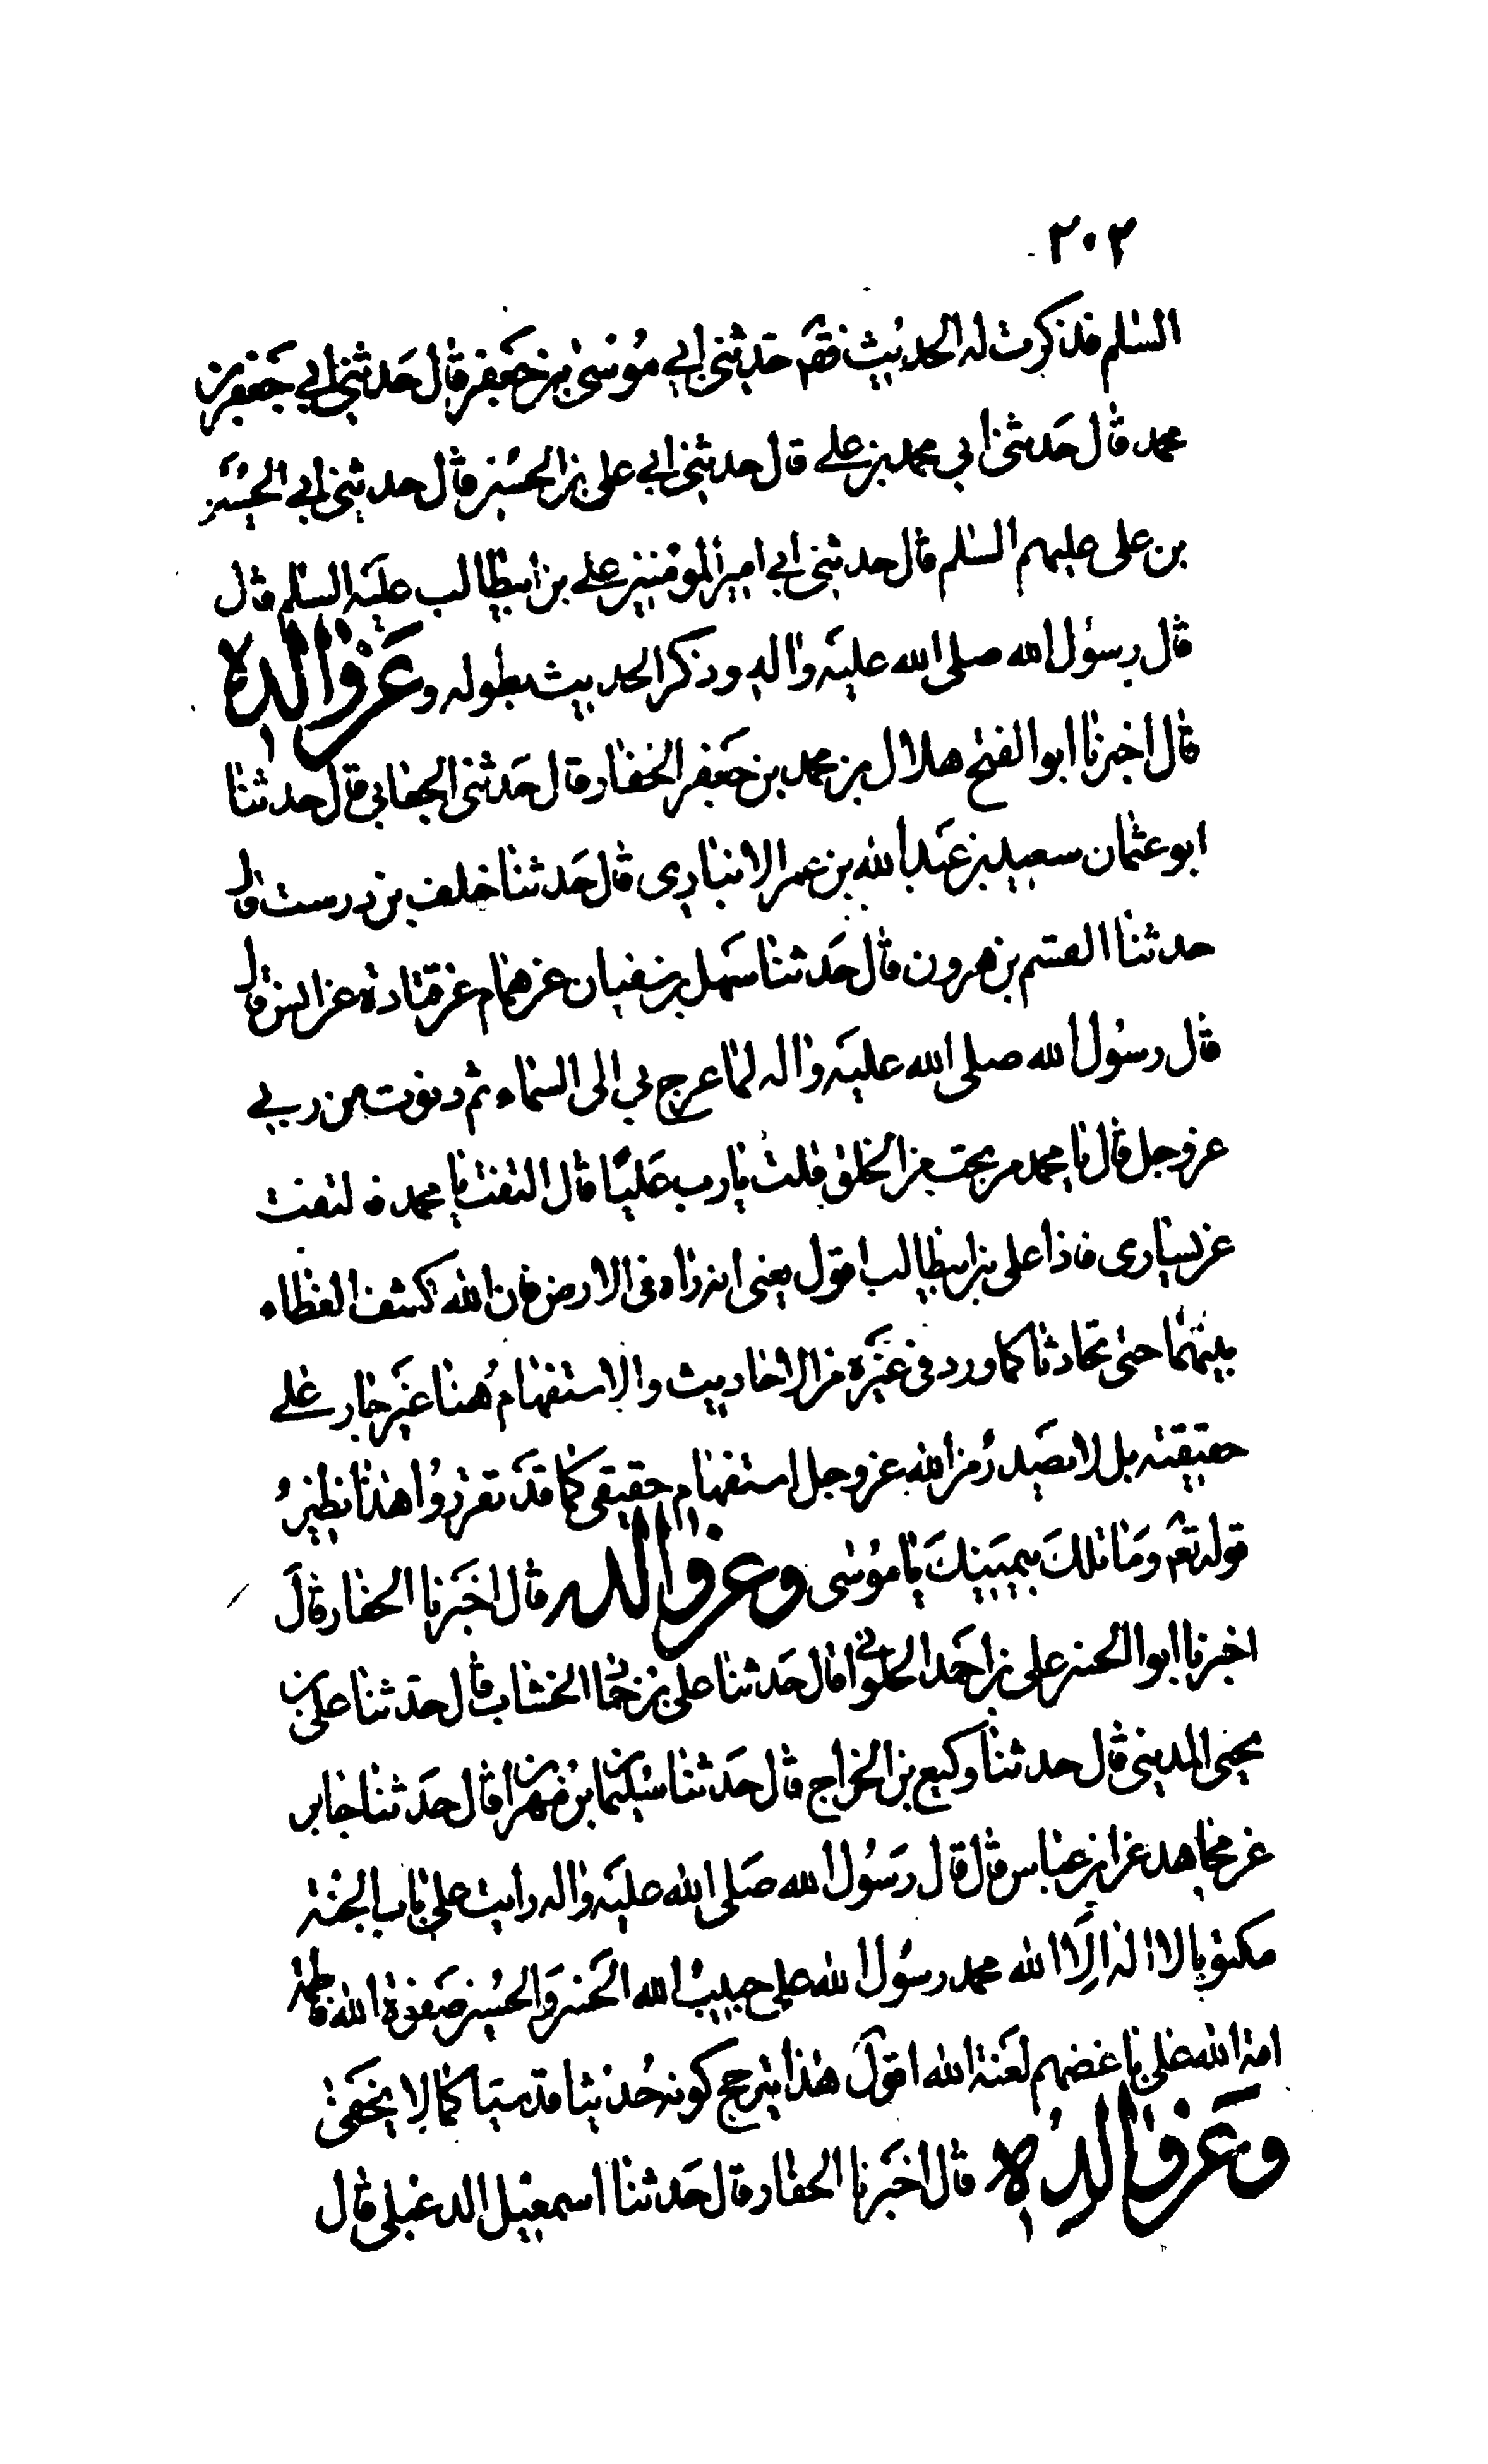 ٣٠٢
السلم فذكرت له الحديث فقال حدثنى ابي موسى بن جعفر قال حدثنى ابي جعفر بن
محمد قال حدثنى ابي محمد بن على قال حدثنى ابي على بن الحسين قال حدثنى ابي الحسين
بن على عليهم السلم قال حدثنى ابي امير المؤمنين على بن ابيطالب عليه السلم قال
قال رسول الله صلى الله عليه واله وذكر الحديث بطوله وعن والده
قال اخبرنا ابو الفتح هلال بن محمد بن جعفر الحفار قال حدثنى الجعابي قال حدثنا
ابو عثمان سعيد بن عبد الله بن عمر الانبارى قال حدثنا خلف بن درست قال
حدثنا القسم بن هرون قال حدثنا سهل بن سفيان عن همام عن قتادة عن انس قال
قال رسول الله صلى الله عليه واله لما عرج بي الى السماء ثم دنوت من ربي
عز وجل قال يا محمد من تحب من الخلق قلت يا رب عليا قال التفت يا محمد فالتفت
عن يسارى فاذا على بن ابيطالب اقول يعنى انه راه فى الارض فان الله كشف الغطاء
بينهما حتى تحادثا كما ورد فى غيره من الاحاديث والاستفهام هنا غير جار على
حقيقته بل لا يصدر من الله عز وجل استفهام حقيقى كما قد تقرر وهذا نظير
قوله تعم وما تلك بيمينك يا موسى وعن والده قال اخبرنا الحفار قال
اخبرنا ابو الحسن على بن احمد الحلوانى قال حدثنا على بن حماد الخشاب قال حدثنا على بن
يحيى المدينى قال حدثنا وكيع بن الجراح قال حدثنا سليمان بن مهران قال حدثنا جابر
عن مجاهد عن ابن عباس قال قال رسول الله صلى الله عليه واله رايت على باب الجنة
مكتوبا لا اله الا الله محمد رسول الله على حبيب الله الحسن والحسين صفوة الله فاطمة
امة الله على باغضهم لعنة الله اقول هذا يترجح كونه حديثا قدسيا كما لا يخفى
وعن والده قال اخبرنا الحفار قال حدثنا اسمعيل الدعبلى قال